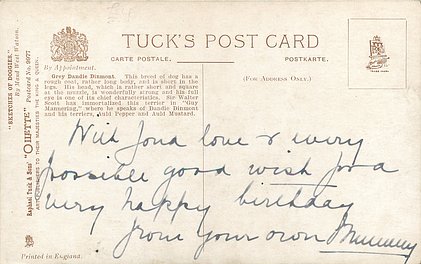 TUCK'S POST CARD
CARTE POSTALE.
POSTKARTE.
By Appointment.
(FOR ADDRESS ONLY.)
Grey Dandie Dinmont. This breed of dog has a
rough coat, rather long body, and is short in the
legs. His head, which is rather short and square
at the muzzle, is wonderfully strong and his full
eye is one of its chief characteristics. Sir Walter
Scott has immortalised this terrier in "Guy
Mannering," where he speaks of Dandie Dinmont
and his terriers, Auld Pepper and Auld Mustard.
TRADE MARK
"SKETCHES OF DOGGIES."
By Maud West Watson.
Raphael Tuck & Sons' "OILETTE"
ART PUBLISHERS TO THEIR MAJESTIES THE KING & QUEEN.
With fond love & every
possible good wish for a
very happy birthday
from your own Mummy
Printed in England.